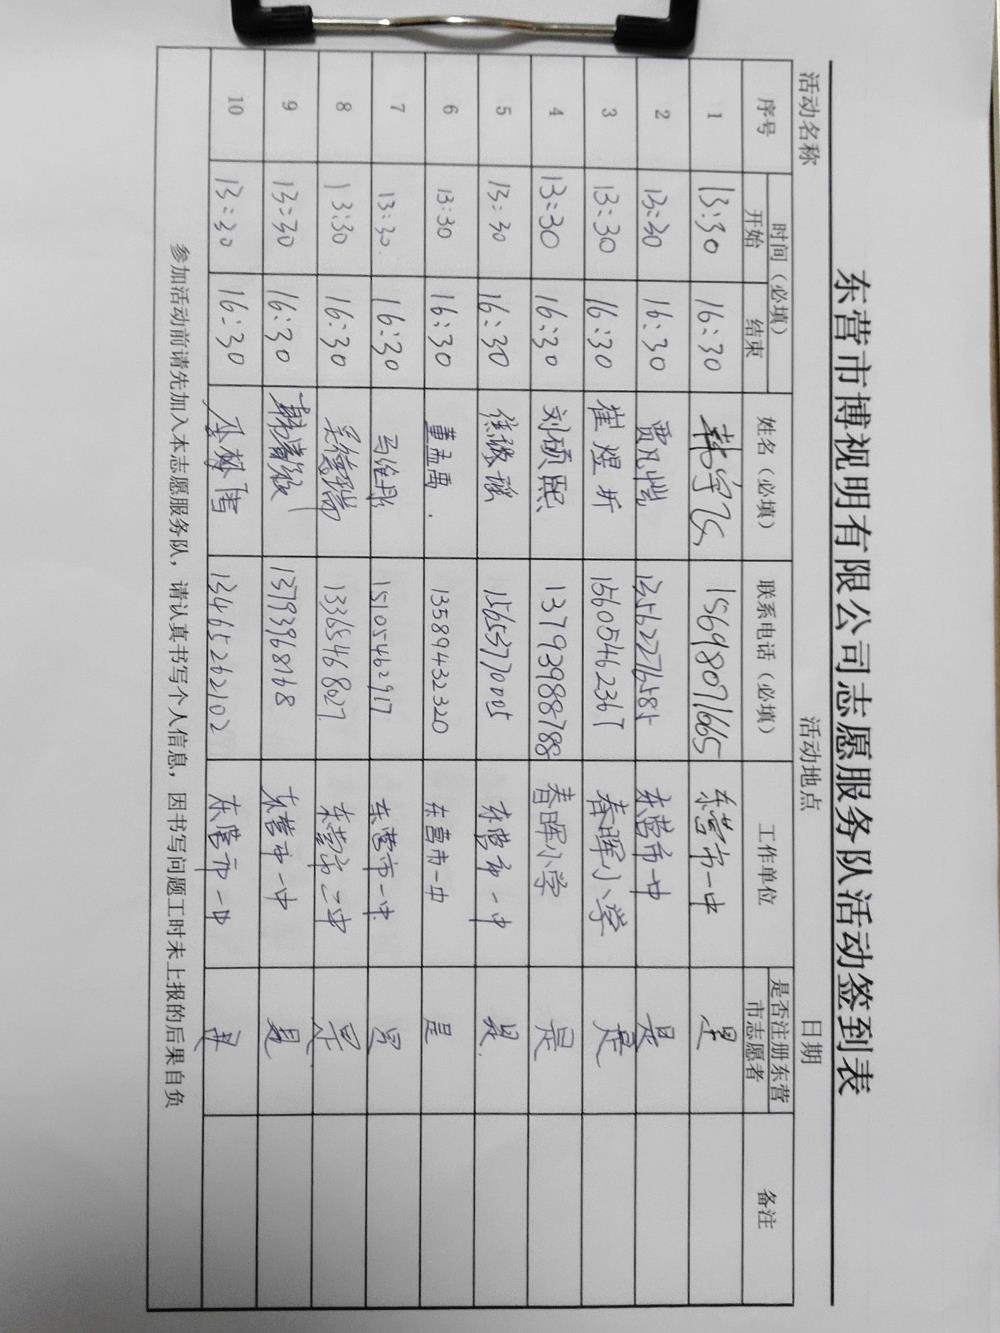 东营市博视明有限公司志愿服务队活动签到表
活动名称 活动地点 日期
序号 时间（必填） 姓名（必填） 联系电话（必填） 工作单位 是否注册东营市志愿者 备注
开始 结束
1 13:30 16:30 韩宇飞 15698071665 东营市一中 是
2 13:30 16:30 贾凡恺 13562276585 东营市一中 是
3 13:30 16:30 崔煜昕 15605462367 春晖小学 是
4 13:30 16:30 刘硕熙 13793988788 春晖小学 是
5 13:30 16:30 徐 瑶 15653770005 东营市一中 是
6 13:30 16:30 董孟禹 13589432320 东营市一中 是
7 13:30 16:30 马维彤 15105462917 东营市一中 是
8 13:30 16:30 吴德瑞 13365468027 东营市二中 是
9 13:30 16:30 韩 13793968768 东营市一中 是
10 13:30 16:30 13465262102 东营市一中 是
参加活动前请先加入本志愿服务队，请认真书写个人信息，因书写问题工时未上报的后果自负